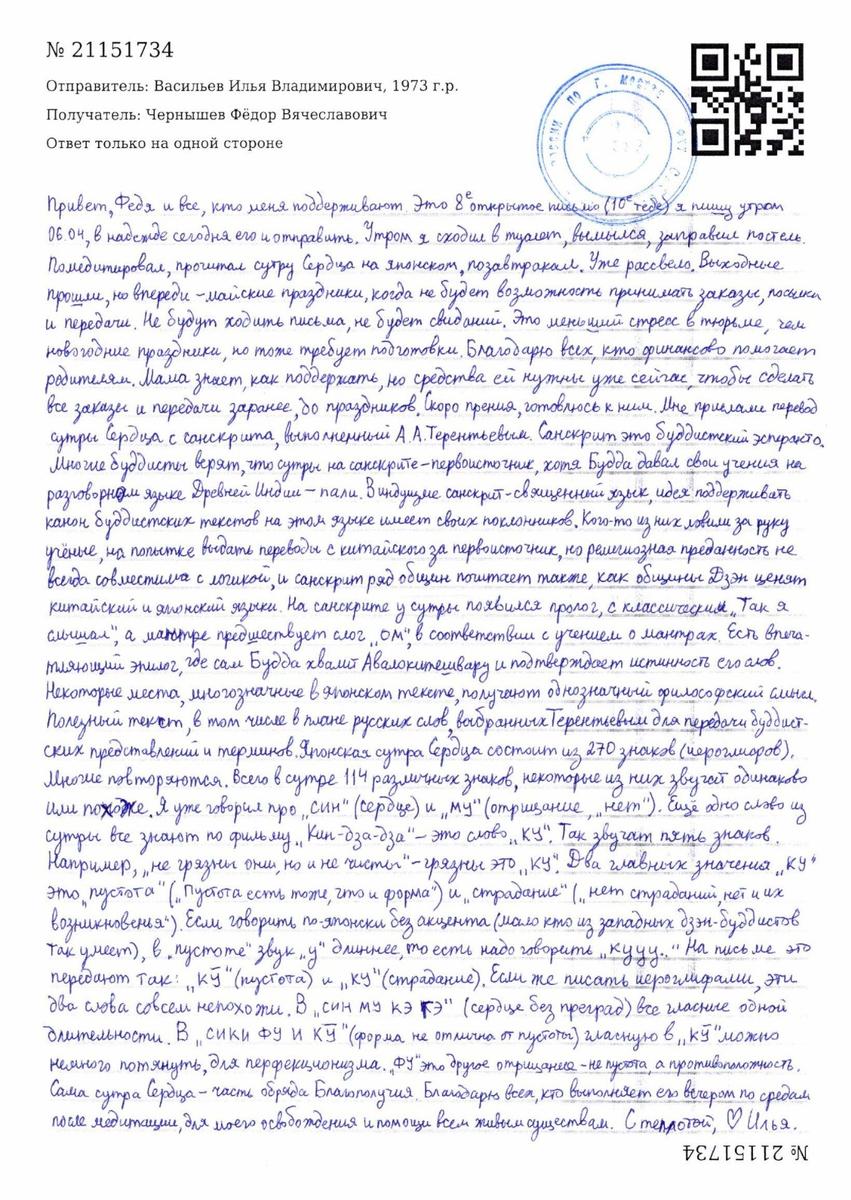 № 21151734
Отправитель: Васильев Илья Владимирович, 1973 г.р.
Получатель: Чернышев Фёдор Вячеславович
Ответ только на одной стороне
Привет, Федя и все, кто меня поддерживают. Это 8е открытое письмо (10е тебе) я пишу утром
06.04, в надежде сегодня его и отправить. Утром я сходил в туалет, вымылся, заправил постель.
Помедитировал, прочитал сутру Сердца на японском, позавтракал. Уже рассвело. Выходные
прошли, но впереди – майские праздники, когда не будет возможность принимать заказы, посылки
и передачи. Не будут ходить письма, не будет свиданий. Это меньший стресс в тюрьме, чем
новогодние праздники, но тоже требует подготовки. Благодарю всех, кто финансово помогает
родителям. Мама знает, как поддержать, но средства ей нужны уже сейчас, чтобы сделать
все заказы и передачи заранее, до праздников. Скоро прения, готовлюсь к ним. Мне прислали перевод
сутры Сердца с санскрита, выполненный А.А.Терентьевым. Санскрит это буддистский эсперанто.
Многие буддисты верят, что сутры на санскрите – первоисточник, хотя Будда давал свои учения на
разговорном языке Древней Индии – пали. В индуизме санскрит – священный язык, идея поддерживать
канон буддистских текстов на этом языке имеет своих поклонников. Кого-то из них ловили за руку
учёные, на попытке выдать переводы с китайского за первоисточник, но религиозная преданность не
всегда совместима с логикой, и санскрит ряд общин почитает также, как общины Дзэн ценят
китайский и японский языки. На санскрите у сутры появился пролог, с классическим „Так я
слышал", а мантре предшествует слог „ОМ", в соответствии с учением о мантрах. Есть впеча-
тляющий эпилог, где сам Будда хвалит Авалокитешвару и подтверждает истинность его слов.
Некоторые места, многозначные в японском тексте, получают однозначный философский смысл.
Полезный текст, в том числе в плане русских слов, выбранных Терентьевым для передачи буддист-
ских представлений и терминов. Японская сутра Сердца состоит из 270 знаков (иероглифов).
Многие повторяются. Всего в сутре 114 различных знаков, некоторые из них звучат одинаково
или похоже. Я уже говорил про „СИН" (сердце) и „МУ" (отрицание, „нет"). Ещё одно слово из
сутры все знают по фильму „Кин-дза-дза" – это слово „КУ". Так звучат пять знаков.
Например, „не грязны они, но и не чисты" – грязны это „КУ". Два главных значения „КУ"
это „пустота" („Пустота есть тоже, что и форма") и „страдание" („нет страданий, нет и их
возникновенья"). Если говорить по-японски без акцента (мало кто из западных дзэн-буддистов
так умеет), в „пустоте" звук „у" длиннее, то есть надо говорить „кууу.." На письме это
передают так: „КӮ" (пустота) и „КУ" (страдание). Если же писать иероглифами, эти
два слова совсем непохожи. В „СИН МУ КЭ ГЭ" (сердце без преград) все гласные одной
длительности. В „СИКИ ФУ И КӮ" (форма не отлична от пустоты) гласную в „КӮ" можно
немного потянуть, для перфекционизма. „ФУ" это другое отрицание – не пустота, а противоположность.
Сама сутра Сердца – часть обряда Благополучия. Благодарю всех, кто выполняет его вечером по средам
после медитации, для моего освобождения и помощи всем живым существам. С теплотой, ♡ Илья.
№ 21151734